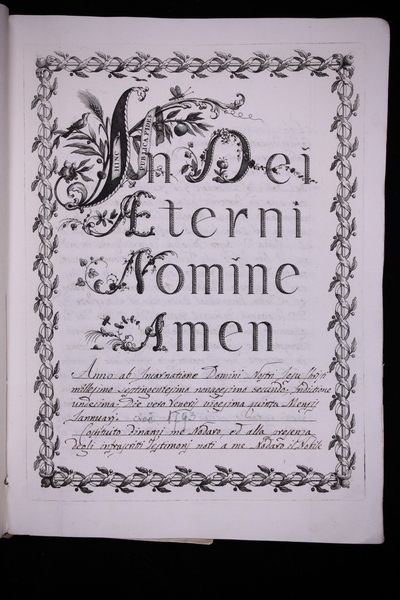 In Dei
HINC PUBLICA FIDES
Æterni
Nomine
Amen
Anno ab Incarnatione Domini Nostri Jesu
millesimo septingentesimo nonagesimo secundo, Indictione
undecima. Die vero Veneris vigesima quinta Mensis
Januarij. cioè 1793
Costituto dinanzi me Nodaro ed alla presenza
degli infrascritti Testimonj noti a me Nodaro il Nobile